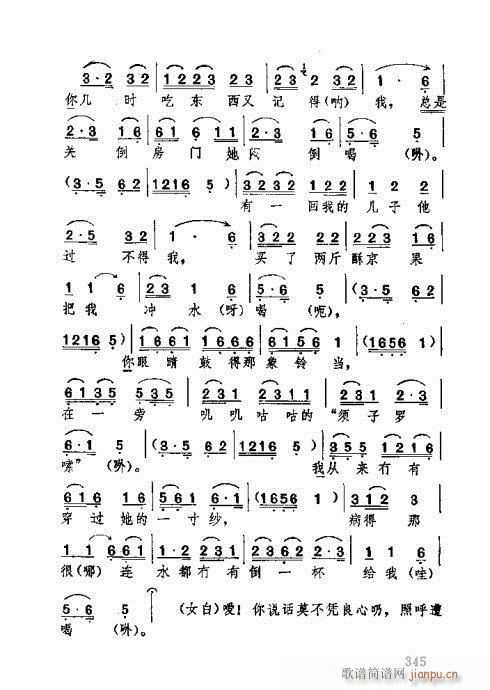 3·2 32 | 1223 23 | 23 32 | 1 · 6
你几 时 吃东 西又 记 得(呐) 我, 总是
2·3 16 | 61 123 | 2·6 5
关 倒 房 门她 闷 倒喝 (哟)。
(3·5 62 | 1216 5) | 3231 | 1 2 2
有 一 回我的 儿子 他
2·5 32 | 1 · 6 | 31 2 | 223 16
过 不得 我, 买 了 两斤 酥京 果
1 1 6 | 23 1 | 5·6 5 | (3·5 62
把 我 冲 水 (呀) 喝 (呃),
1216 5) | 1661 661 | 6156 1 | (1656 1)
你眼 睛 鼓得 那象 铃 当,
6135 535 | 231 231 | 2·3 21
在 一 旁 叽叽 咕咕的 “须 子 罗
6·1 5 | (3·5 62 | 1216 5) | 355 112
嗦” (哟)。 我从 来冇有
616 116 | 561 6·1 | (1656 1) | 312 3
穿 过 她的 一 寸 纱, 病得 那
1 1 661 | 1·2 231 | 231 223 | 1 1 6
很 (哪) 连 水都 冇 有 倒 一 杯 给我 (哇)
5·6 5
喝 (哟)。 (女白) 嗳! 你说话莫不凭良心叻, 照呼遭
345
歌谱简谱网
jianpu.cn